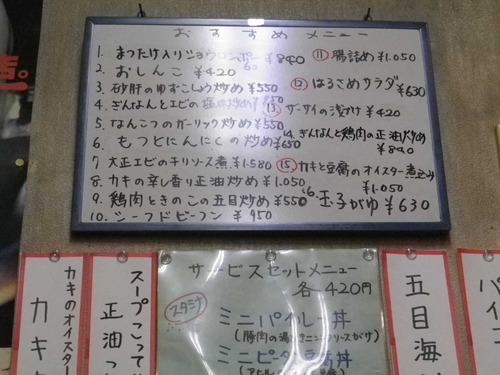 おすすめメニュー
1. まつたけ入りショウロンポー ¥840
2. おしんこ ¥420
3. 砂肝のゆずこしょう炒め ¥550
4. ぎんなんとエビの炒め
5. なんこつのガーリック炒め ¥550
6. もつとにんにくの炒め ¥650
7. 大正エビのチリソース煮 ¥1.580
8. カキの辛し香り正油炒め ¥1.050
9. 鶏肉ときのこの五目炒め ¥550
10. シーフドビーフン ¥950
⑪ 腸詰め ¥1.050
⑫ はるさめサラダ ¥630
⑬ ザーサイの浅づけ ¥420
14. ぎんなんと鶏肉の正油炒め ¥840
⑮ カキと豆腐のオイスター煮込み ¥1.050
16. 玉子がゆ ¥630
サービスセットメニュー
各420円
スタミナ
ミニパイコー丼
ミニピータン豆腐丼
カキのオイスター
カキ
スープこって
正油
五目海